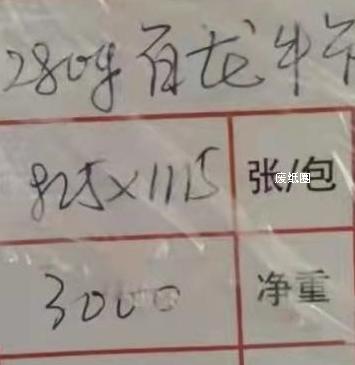 280g 百龙牛卡
825×1115 张/包
废纸圈
3000 净重